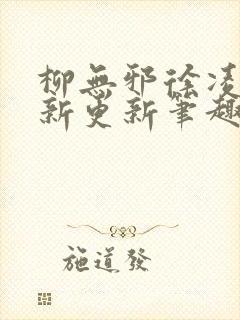 柳無邪徐凌
新更新筆趣
施道發